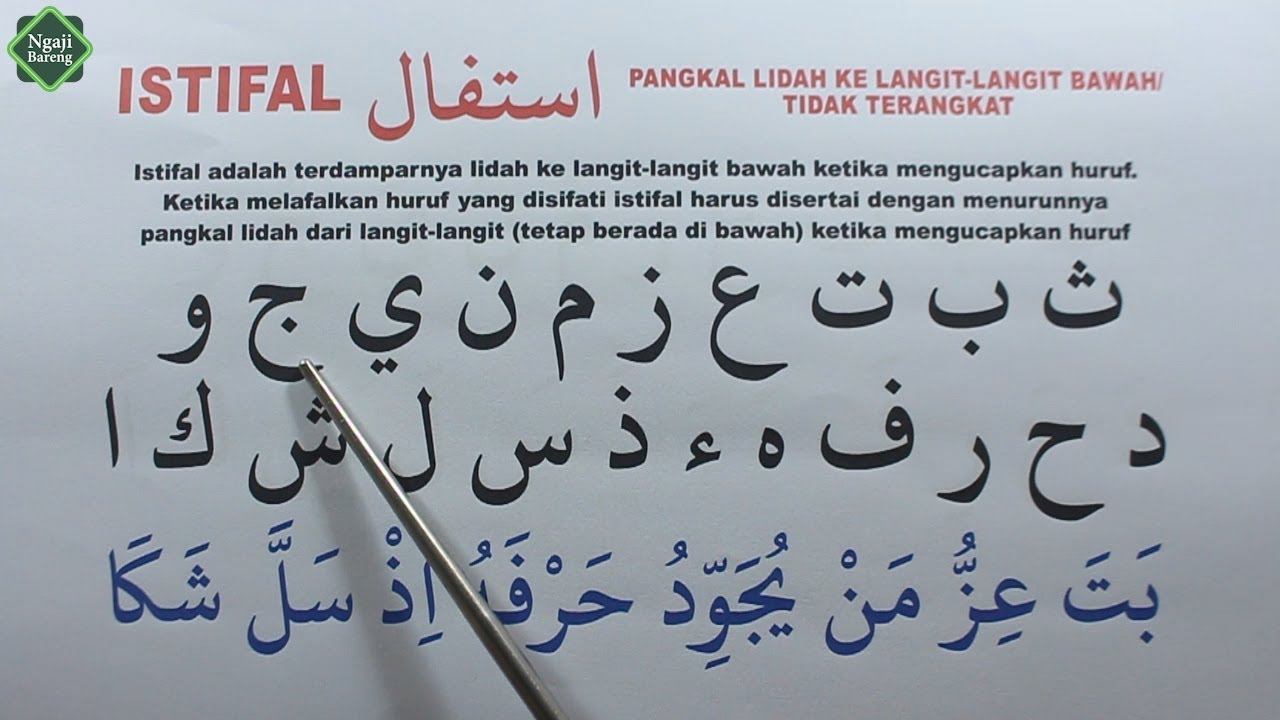 Ngaji
Bareng
ISTIFAL استفال
PANGKAL LIDAH KE LANGIT-LANGIT BAWAH/
TIDAK TERANGKAT
Istifal adalah terdamparnya lidah ke langit-langit bawah ketika mengucapkan huruf.
Ketika melafalkan huruf yang disifati istifal harus disertai dengan menurunnya
pangkal lidah dari langit-langit (tetap berada di bawah) ketika mengucapkan huruf
ث ب ت ع ز م ن ي ج و
د ح ر ف ه ء ذ س ل ش ك ا
بَتَ عِزُّ مَنْ يُجَوِّدُ حَرْفَهُ اِذْ سَلَّ شَكَا